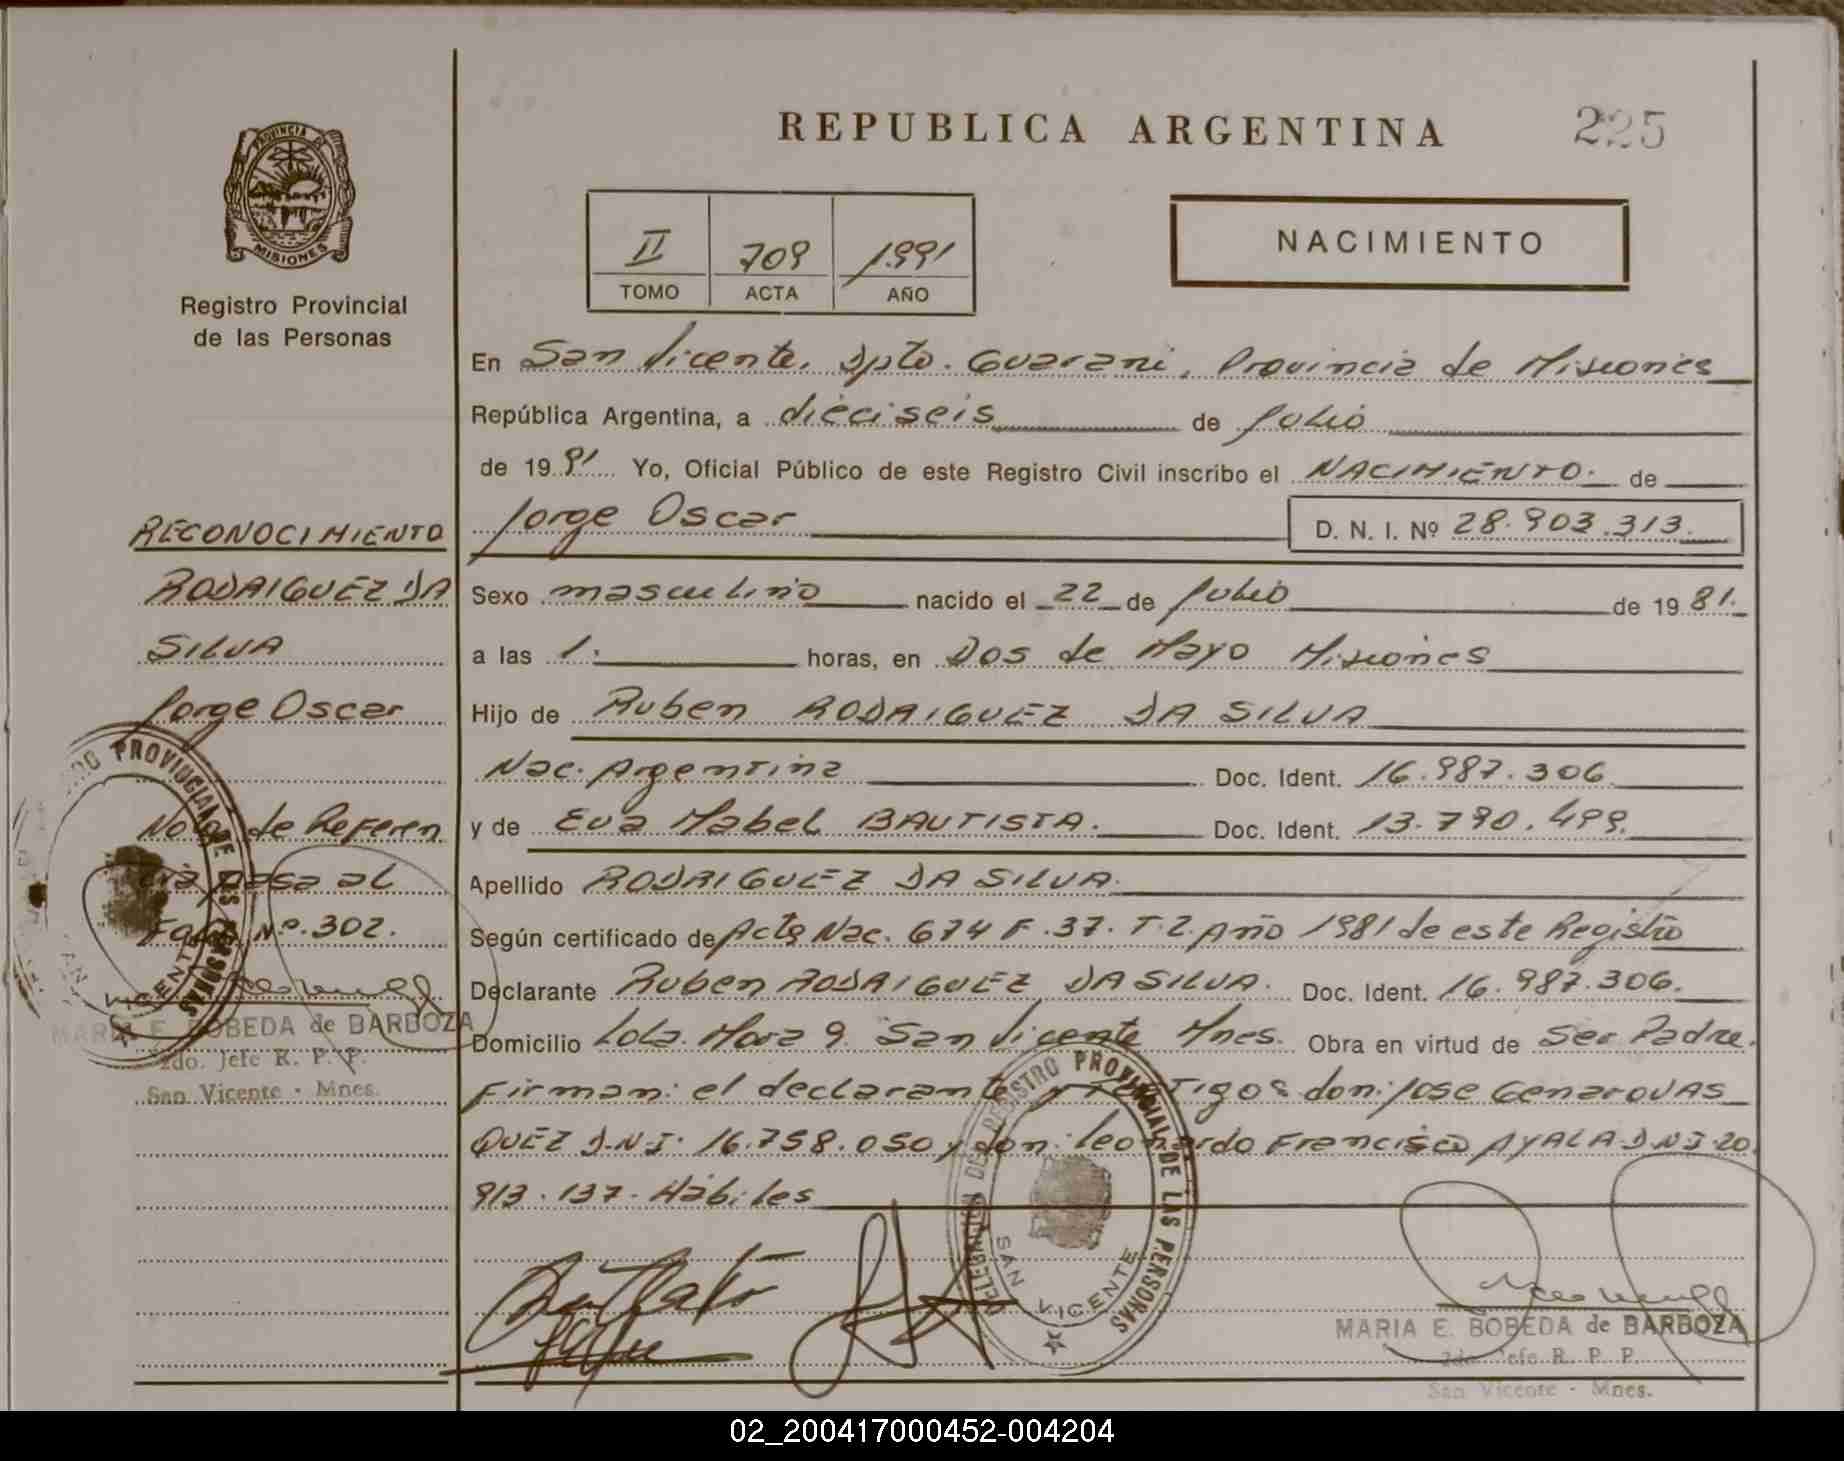 REPUBLICA ARGENTINA
225
PROVINCIA D
MISIONES
Registro Provincial
de las Personas
II 709 1991
TOMO ACTA AÑO
NACIMIENTO
En San Vicente, Dpto. Guarani, Provincia de Misiones
República Argentina, a dieciseis de Julio
de 1991 Yo, Oficial Público de este Registro Civil inscribo el NACIMIENTO. de
Jorge Oscar D. N. I. Nº 28.903.313.
Sexo masculino nacido el 22 de Julio de 1981.
a las 1. horas, en Dos de Mayo Misiones
Hijo de Ruben RODRIGUEZ DA SILVA
Nac. Argentina Doc. Ident. 16.987.306
y de Eva Mabel BAUTISTA. Doc. Ident. 13.790.499.
Apellido RODRIGUEZ DA SILVA.
Según certificado de Acta Nac. 674 F. 37. T. 2. Año 1981 de este Registro
Declarante Ruben RODRIGUEZ DA SILVA. Doc. Ident. 16.987.306.
Domicilio Lola. Mora 9. San Vicente Mnes. Obra en virtud de Ser Padre.
Firman: el declarante y TESTIGOS don: Jose Genaro VAS
QUEZ D.N.I. 16.758.050 y don: Leonardo Francisco AYALA D.N.I. 20.
913.137. Hábiles
RECONOCIMIENTO
RODRIGUEZ DA
SILVA
Jorge Oscar
Nota de Referen
cia pasa al
Folio Nº. 302.
MARIA E. BOBEDA de BARBOZA
2do. Jefe R. P. P.
San Vicente - Mnes.
REGISTRO PROVINCIAL DE LAS PERSONAS
SAN VICENTE
DELEGACION DE REGISTRO PROVINCIAL DE LAS PERSONAS
SAN VICENTE
MARIA E. BOBEDA de BARBOZA
2do. Jefe R. P. P.
San Vicente - Mnes.
02_200417000452-004204